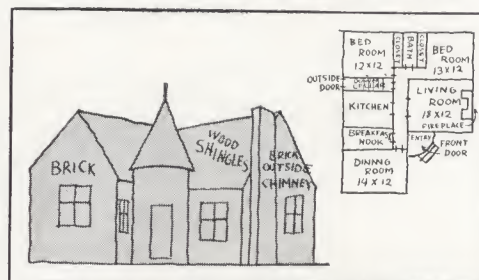 BRICK
WOOD
SHINGLES
BRICK
OUTSIDE
CHIMNEY
BED
ROOM
12 X 12
CLOSET
BATH
CLOSET
BED
ROOM
13 X 12
OUTSIDE
DOOR
CELLAR
KITCHEN
LIVING
ROOM
18 X 12
FIREPLACE
BREAKFAST
NOOK
ENTRY
FRONT
DOOR
DINING
ROOM
14 X 12